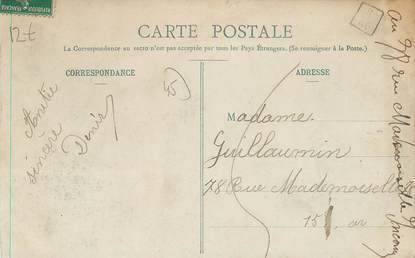 12€
CARTE POSTALE
La Correspondance au recto n'est pas acceptée par tous les Pays Étrangers. (Se renseigner à la Poste.)
CORRESPONDANCE
ADRESSE
Amitié
sincère
Denis
Madame
Guillaumin
78 Rue Mademoiselle
15 ar
au 78 rue Mademoiselle